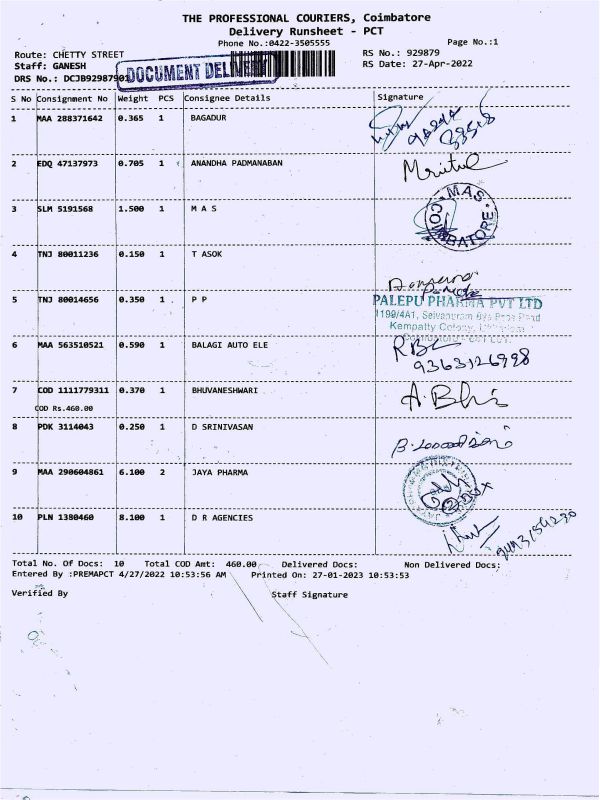 THE PROFESSIONAL COURIERS, Coimbatore
Delivery Runsheet - PCT
Phone No.:0422-3505555
Page No.:1
Route: CHETTY STREET
RS No.: 929879
Staff: GANESH
RS Date: 27-Apr-2022
DRS No.: DCJB92987901
DOCUMENT DELIVERY
S No Consignment No Weight PCS Consignee Details Signature
1 MAA 288371642 0.365 1 BAGADUR
2 EDQ 47137973 0.705 1 ANANDHA PADMANABAN
Mritul
3 SLM 5191568 1.500 1 M A S
MAS
COIMBATORE
4 TNJ 80011236 0.150 1 T ASOK
5 TNJ 80014656 0.350 1 P P
PALEPU PHARMA PVT LTD
Kempatty Colony,
6 MAA 563510521 0.590 1 BALAGI AUTO ELE
9363126998
7 COD 1111779311 0.370 1 BHUVANESHWARI
A. Bhi
COD Rs.460.00
8 PDK 3114043 0.250 1 D SRINIVASAN
9 MAA 290604861 6.100 2 JAYA PHARMA
10 PLN 1380460 8.100 1 D R AGENCIES
Total No. Of Docs: 10 Total COD Amt: 460.00 Delivered Docs: Non Delivered Docs:
Entered By :PREMAPCT 4/27/2022 10:53:56 AM Printed On: 27-01-2023 10:53:53
Verified By Staff Signature